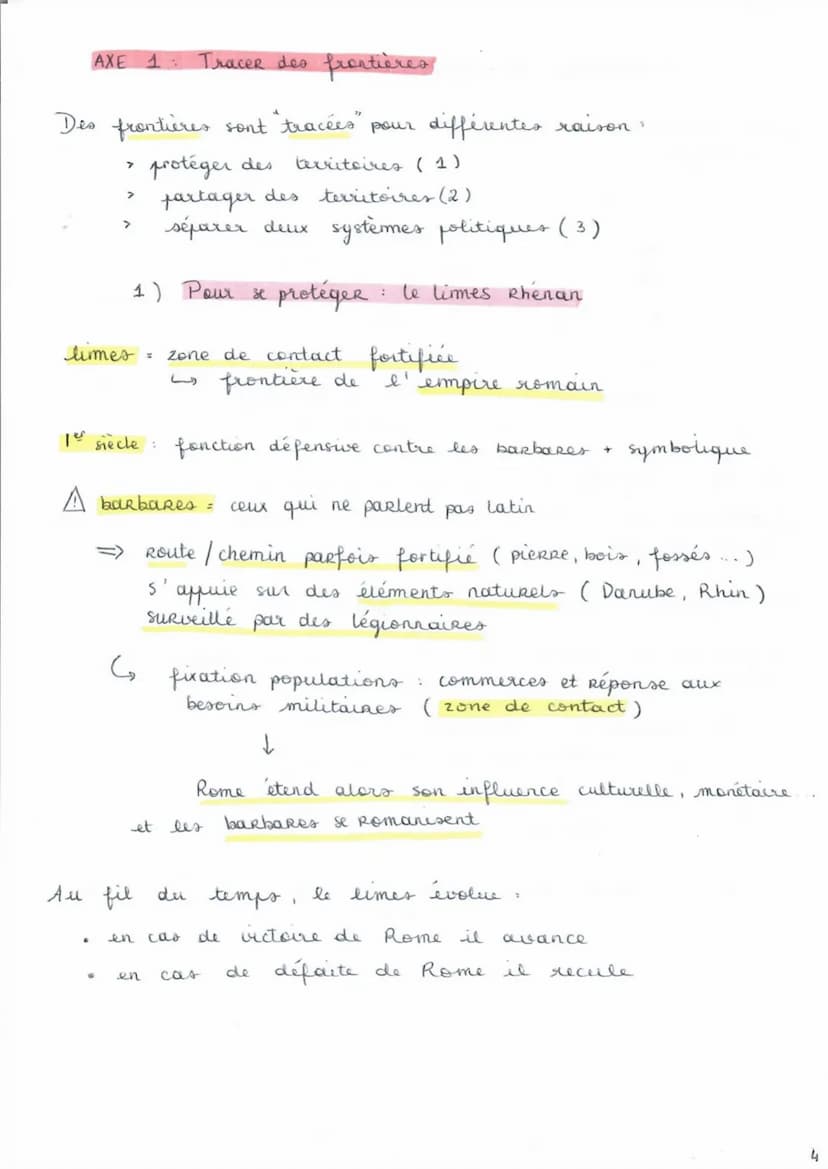 AXE 1 : Tracer des frontières
Des frontières sont "tracées" pour différentes raison :
> protéger des territoires (1)
> partager des territoires (2)
> séparer deux systèmes politiques (3)
1) Pour se protéger : le limes Rhénan
limes = zone de contact fortifiée
↳ frontière de l'empire romain
1er siècle : fonction défensive contre les barbares + symbolique
⚠ barbares = ceux qui ne parlent pas latin
=> Route / chemin parfois fortifié (pierre, bois, fossés ...)
s'appuie sur des éléments naturels (Danube, Rhin)
surveillé par des légionnaires
↳ fixation populations : commerces et réponse aux
besoins militaires (zone de contact)
↓
Rome étend alors son influence culturelle, monétaire ..
et les barbares se romanisent
Au fil du temps, le limes évolue :
• en cas de victoire de Rome il avance
• en cas de défaite de Rome il recule
4